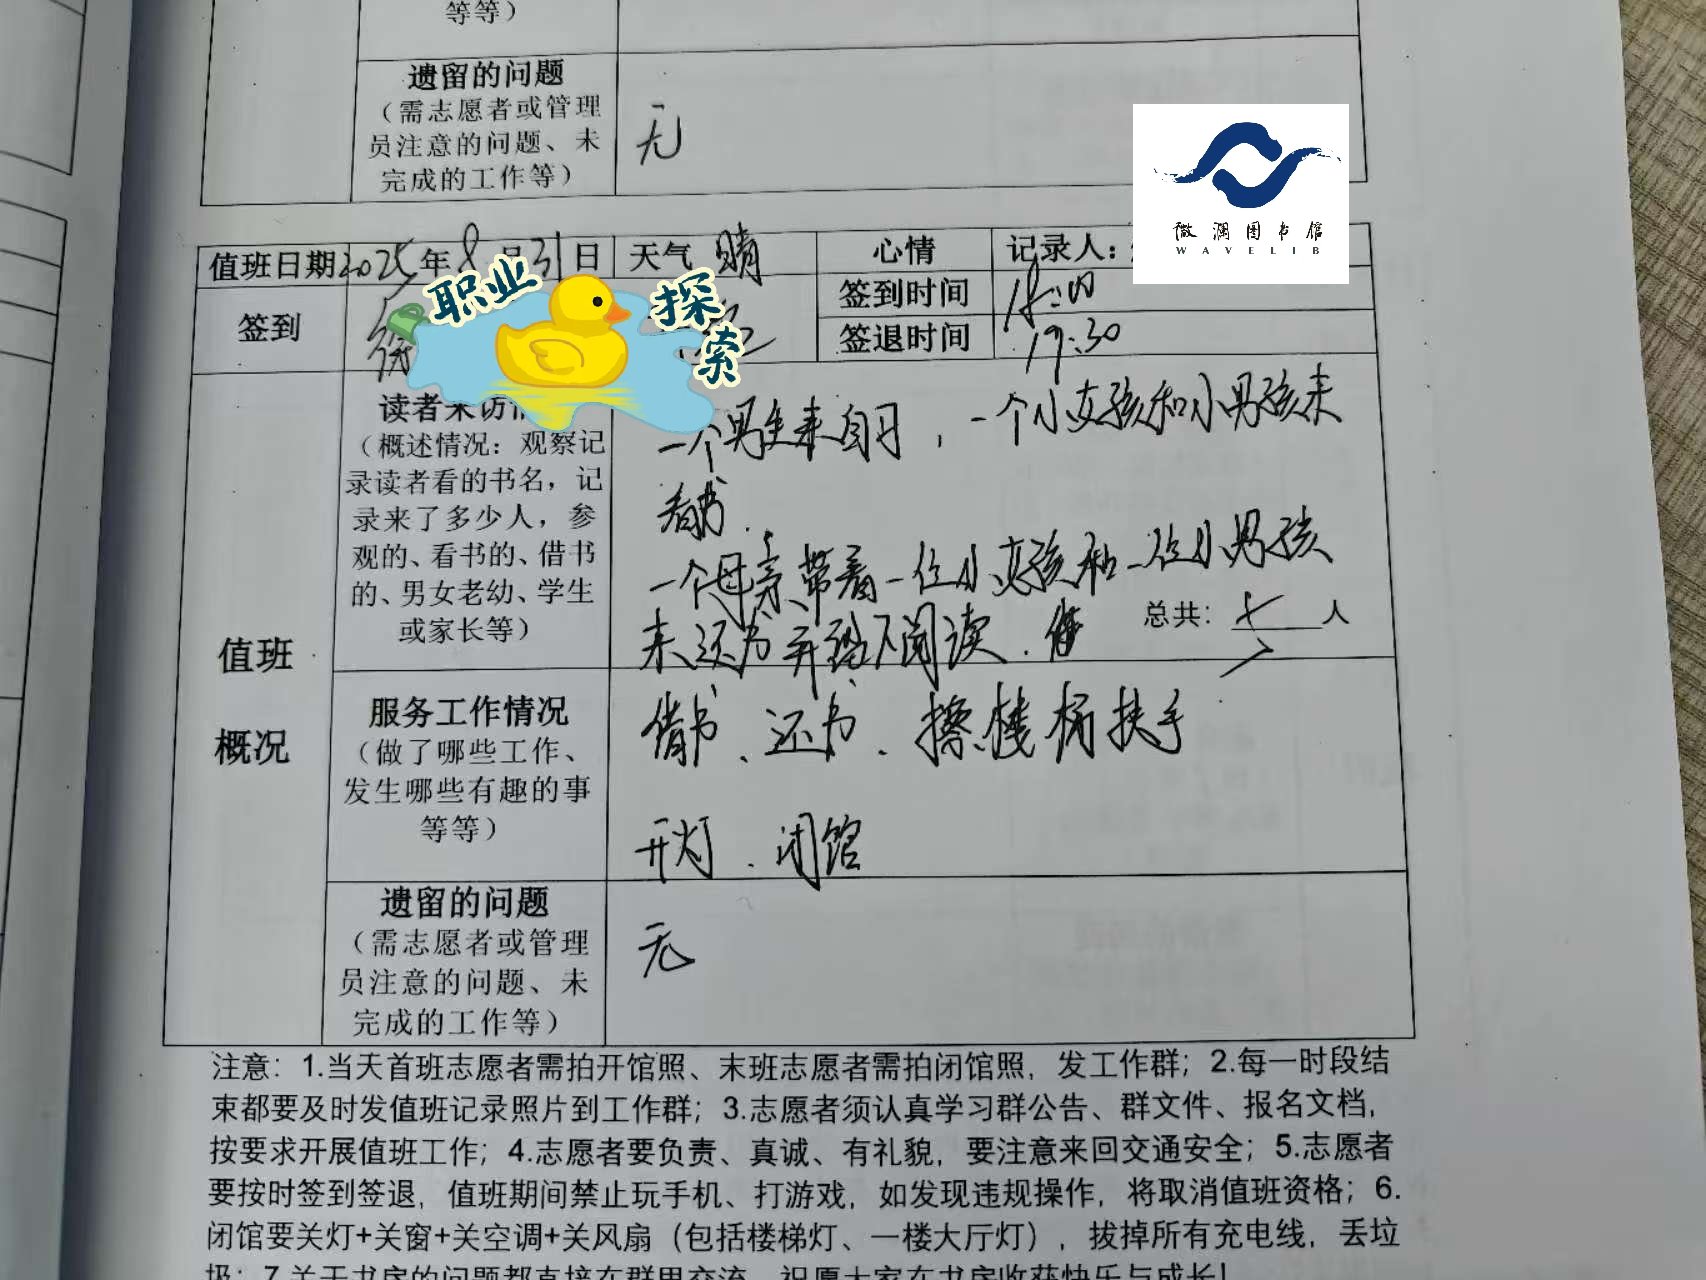 等等）
遗留的问题
（需志愿者或管理
员注意的问题、未
完成的工作等）
无
微澜图书馆
WAVELIB
值班日期2025年8月31日 天气 晴 心情 记录人：
签到
签到时间 18:00
签退时间 19:30
职业
探
索
值班
概况
读者来访
（概述情况：观察记
录读者看的书名，记
录来了多少人，参
观的、看书的、借书
的、男女老幼、学生
或家长等）
一个男生来自习，一个小女孩和小男孩来
看书.
一个母亲带着一位小女孩和一位小男孩
来还书并留下阅读.
总共：七人
服务工作情况
（做了哪些工作、
发生哪些有趣的事
等等）
借书、还书、擦楼梯扶手
开灯.闭馆
遗留的问题
（需志愿者或管理
员注意的问题、未
完成的工作等）
无
注意：1.当天首班志愿者需拍开馆照、末班志愿者需拍闭馆照，发工作群；2.每一时段结
束都要及时发值班记录照片到工作群；3.志愿者须认真学习群公告、群文件、报名文档，
按要求开展值班工作；4.志愿者要负责、真诚、有礼貌，要注意来回交通安全；5.志愿者
要按时签到签退，值班期间禁止玩手机、打游戏，如发现违规操作，将取消值班资格；6.
闭馆要关灯+关窗+关空调+关风扇（包括楼梯灯、一楼大厅灯），拔掉所有充电线，丢垃
圾；7.关于书房的问题都直接在群里交流，祝愿大家在书房收获快乐与成长！